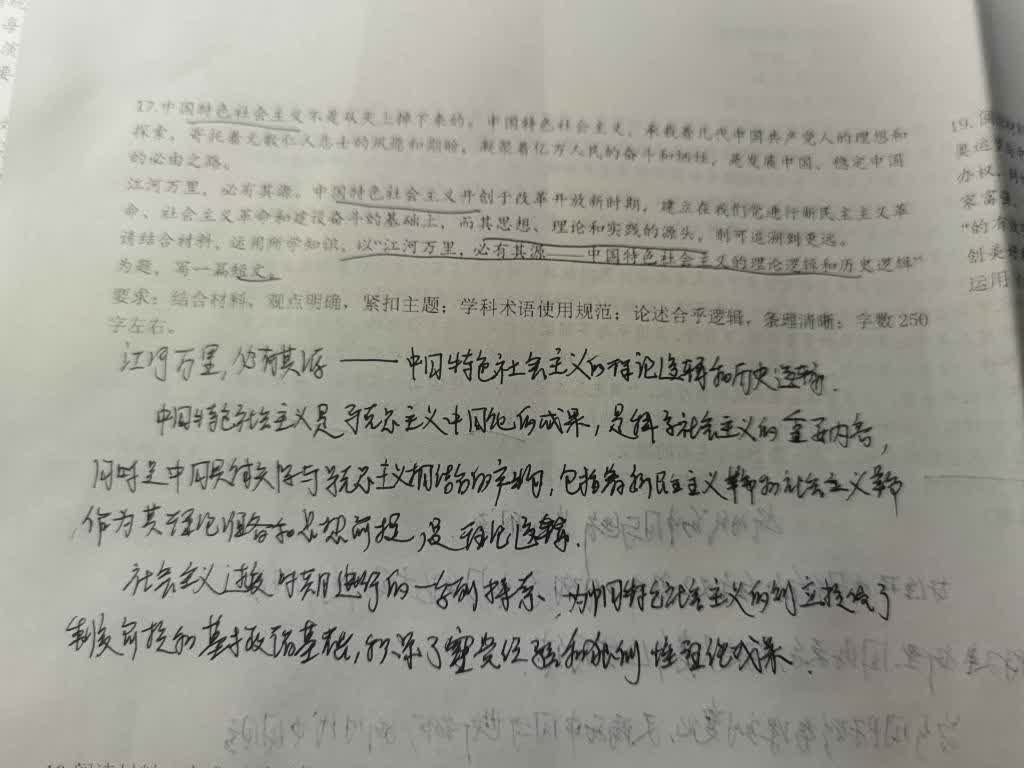 17.中国特色社会主义不是从天上掉下来的。中国特色社会主义，承载着几代中国共产党人的理想和
探索，寄托着无数仁人志士的夙愿和期盼，凝聚着亿万人民的奋斗和牺牲，是发展中国、稳定中国
的必由之路。
江河万里，必有其源。中国特色社会主义开创于改革开放新时期，建立在我们党进行新民主主义革
命、社会主义革命和建设奋斗的基础上，而其思想、理论和实践的源头，则可追溯到更远。
请结合材料，运用所学知识，以“江河万里，必有其源——中国特色社会主义的理论逻辑和历史逻辑”
为题，写一篇短文。
要求：结合材料、观点明确，紧扣主题；学科术语使用规范；论述合乎逻辑，条理清晰；字数250
字左右。
江河万里,必有其源——中国特色社会主义的理论逻辑和历史逻辑.
中国特色社会主义是马克思主义中国化的成果,是科学社会主义的重要内容,
同时是中国具体实际与马克思主义相结合的产物,包括着新民主主义革命和社会主义革命
作为其理论准备和思想前提,是理论逻辑.
社会主义建设时期进行的一系列探索、为中国特色社会主义的创立提供了
制度前提和基本政治基础,积累了宝贵经验和独创性理论成果.
19.
要运
办权
家富
"的
创美
运用
导
演
要